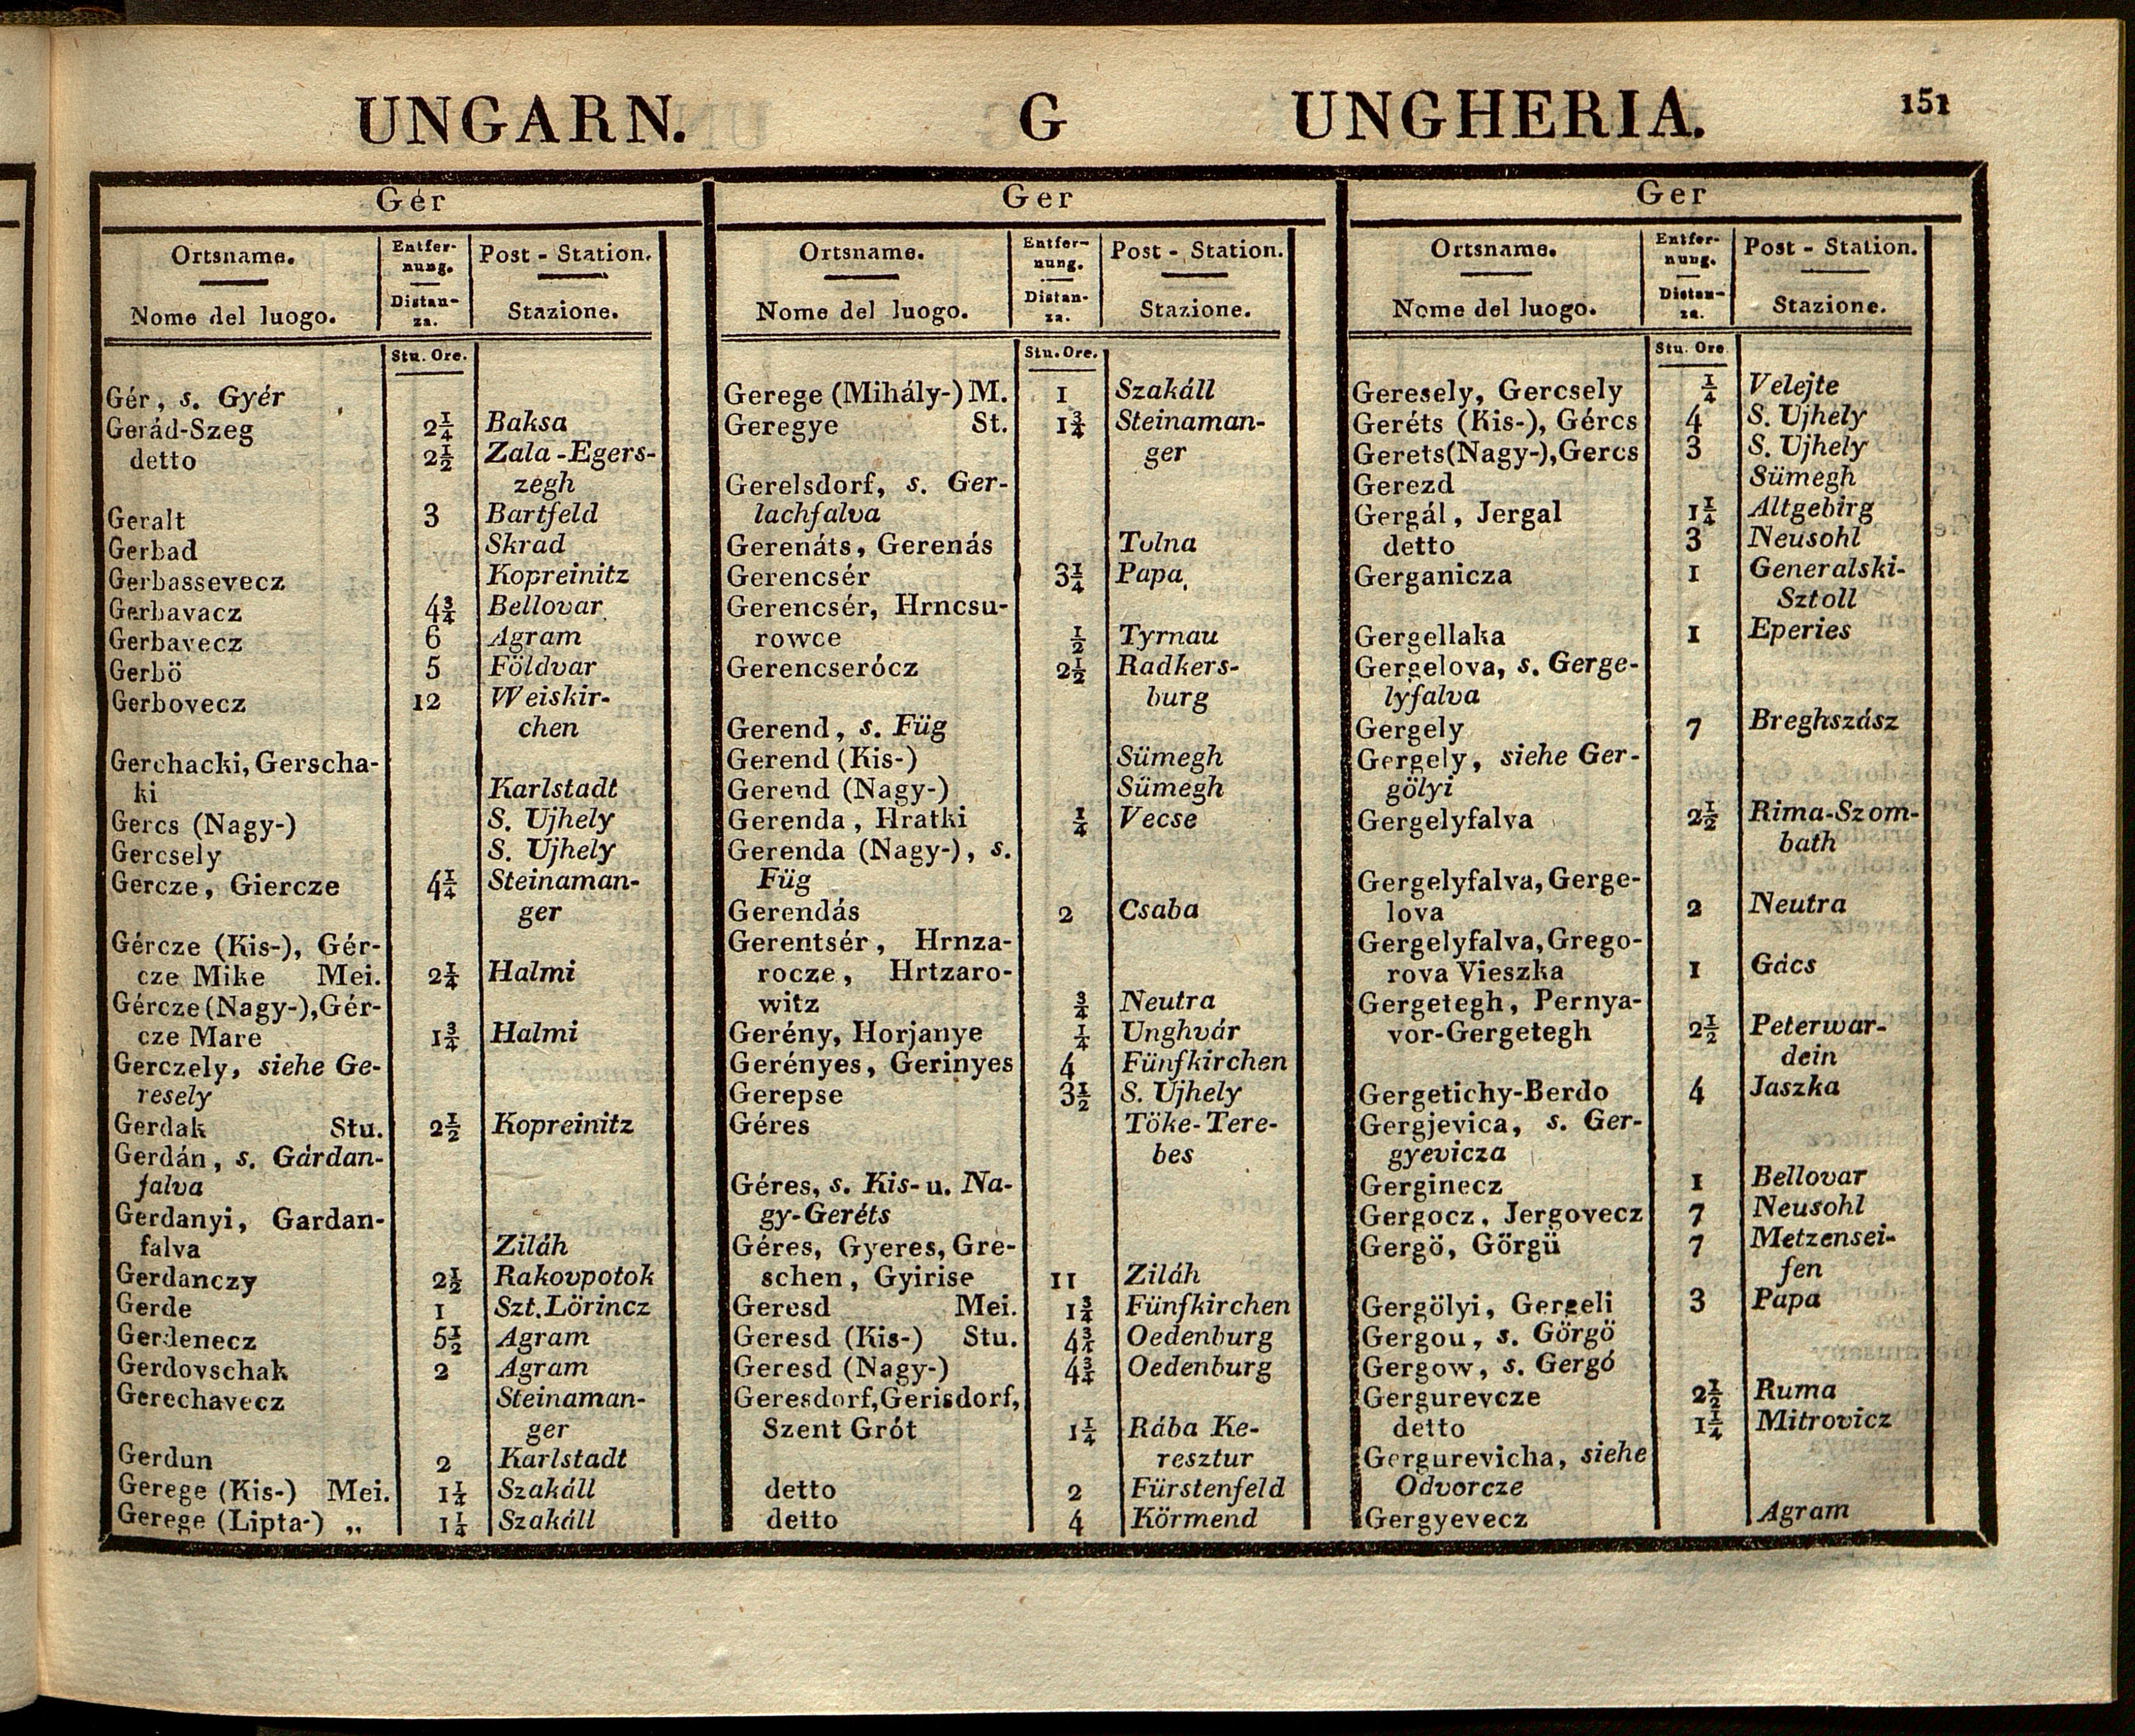 UNGARN. G UNGHERIA. 151
Gér
Ortsname. Entfernung. Post - Station.
Nome del luogo. Distanza. Stazione.
Stu. Ore.
Gér, s. Gyér
Gerád-Szeg 2¼ Baksa
detto 2½ Zala-Egers-
zegh
Geralt 3 Bartfeld
Gerbad Skrad
Gerbassevecz Kopreinitz
Gerbavacz 4¾ Bellovar
Gerbavecz 6 Agram
Gerbö 5 Földvar
Gerbovecz 12 Weiskir-
chen
Gerchacki, Gerscha-
ki Karlstadt
Gercs (Nagy-) S. Ujhely
Gercsely S. Ujhely
Gercze, Giercze 4¼ Steinaman-
ger
Gércze (Kis-), Gér-
cze Mike Mei. 2¼ Halmi
Gércze (Nagy-), Gér-
cze Mare 1¾ Halmi
Gerczely, siehe Ge-
resely
Gerdak Stu. 2½ Kopreinitz
Gerdán, s. Gárdan-
falva
Gerdanyi, Gardan-
falva Ziláh
Gerdanczy 2½ Rakovpotok
Gerde 1 Szt. Lörincz
Gerdenecz 5½ Agram
Gerdovschak 2 Agram
Gerechavecz Steinaman-
ger
Gerdun 2 Karlstadt
Gerege (Kis-) Mei. 1¼ Szakáll
Gerege (Lipta-) „ 1¼ Szakáll
Ger
Ortsname. Entfernung. Post - Station.
Nome del luogo. Distanza. Stazione.
Stu. Ore.
Gerege (Mihály-) M. 1 Szakáll
Geregye St. 1¾ Steinaman-
ger
Gerelsdorf, s. Ger-
lachfalva
Gerenáts, Gerenás Tolna
Gerencsér 3¼ Papa
Gerencsér, Hrncsu-
rowce ½ Tyrnau
Gerencserócz 2½ Radkers-
burg
Gerend, s. Füg
Gerend (Kis-) Sümegh
Gerend (Nagy-) Sümegh
Gerenda, Hratki ¼ Vecse
Gerenda (Nagy-), s.
Füg
Gerendás 2 Csaba
Gerentsér, Hrnza-
rocze, Hrtzaro-
witz ¾ Neutra
Gerény, Horjanye ¼ Unghvár
Gerényes, Gerinyes 4 Fünfkirchen
Gerepse 3½ S. Ujhely
Géres Töke-Tere-
bes
Géres, s. Kis- u. Na-
gy-Geréts
Géres, Gyeres, Gre-
schen, Gyirise 11 Ziláh
Geresd Mei. 1¾ Fünfkirchen
Geresd (Kis-) Stu. 4¾ Oedenburg
Geresd (Nagy-) 4¾ Oedenburg
Geresdorf, Gerisdorf,
Szent Grót 1¼ Rába Ke-
resztur
detto 2 Fürstenfeld
detto 4 Körmend
Ger
Ortsname. Entfernung. Post - Station.
Nome del luogo. Distanza. Stazione.
Stu. Ore
Geresely, Gercsely ¼ Velejte
Geréts (Kis-), Gércs 4 S. Ujhely
Gerets (Nagy-), Gercs 3 S. Ujhely
Gerezd Sümegh
Gergál, Jergal 1¼ Altgebirg
detto 3 Neusohl
Gerganicza 1 Generalski-
Sztoll
Gergellaka 1 Eperies
Gergelova, s. Gerge-
lyfalva
Gergely 7 Breghszász
Gergely, siehe Ger-
gölyi
Gergelyfalva 2½ Rima-Szom-
bath
Gergelyfalva, Gerge-
lova 2 Neutra
Gergelyfalva, Grego-
rova Vieszka 1 Gács
Gergetegh, Pernya-
vor-Gergetegh 2½ Peterwar-
dein
Gergetichy-Berdo 4 Jaszka
Gergjevica, s. Ger-
gyevicza
Gerginecz 1 Bellovar
Gergocz, Jergovecz 7 Neusohl
Gergö, Görgü 7 Metzensei-
fen
Gergölyi, Gergeli 3 Papa
Gergou, s. Görgö
Gergow, s. Gergó
Gergurevcze 2½ Ruma
detto 1¼ Mitrovicz
Gergurevicha, siehe
Odvorcze
Gergyevecz Agram